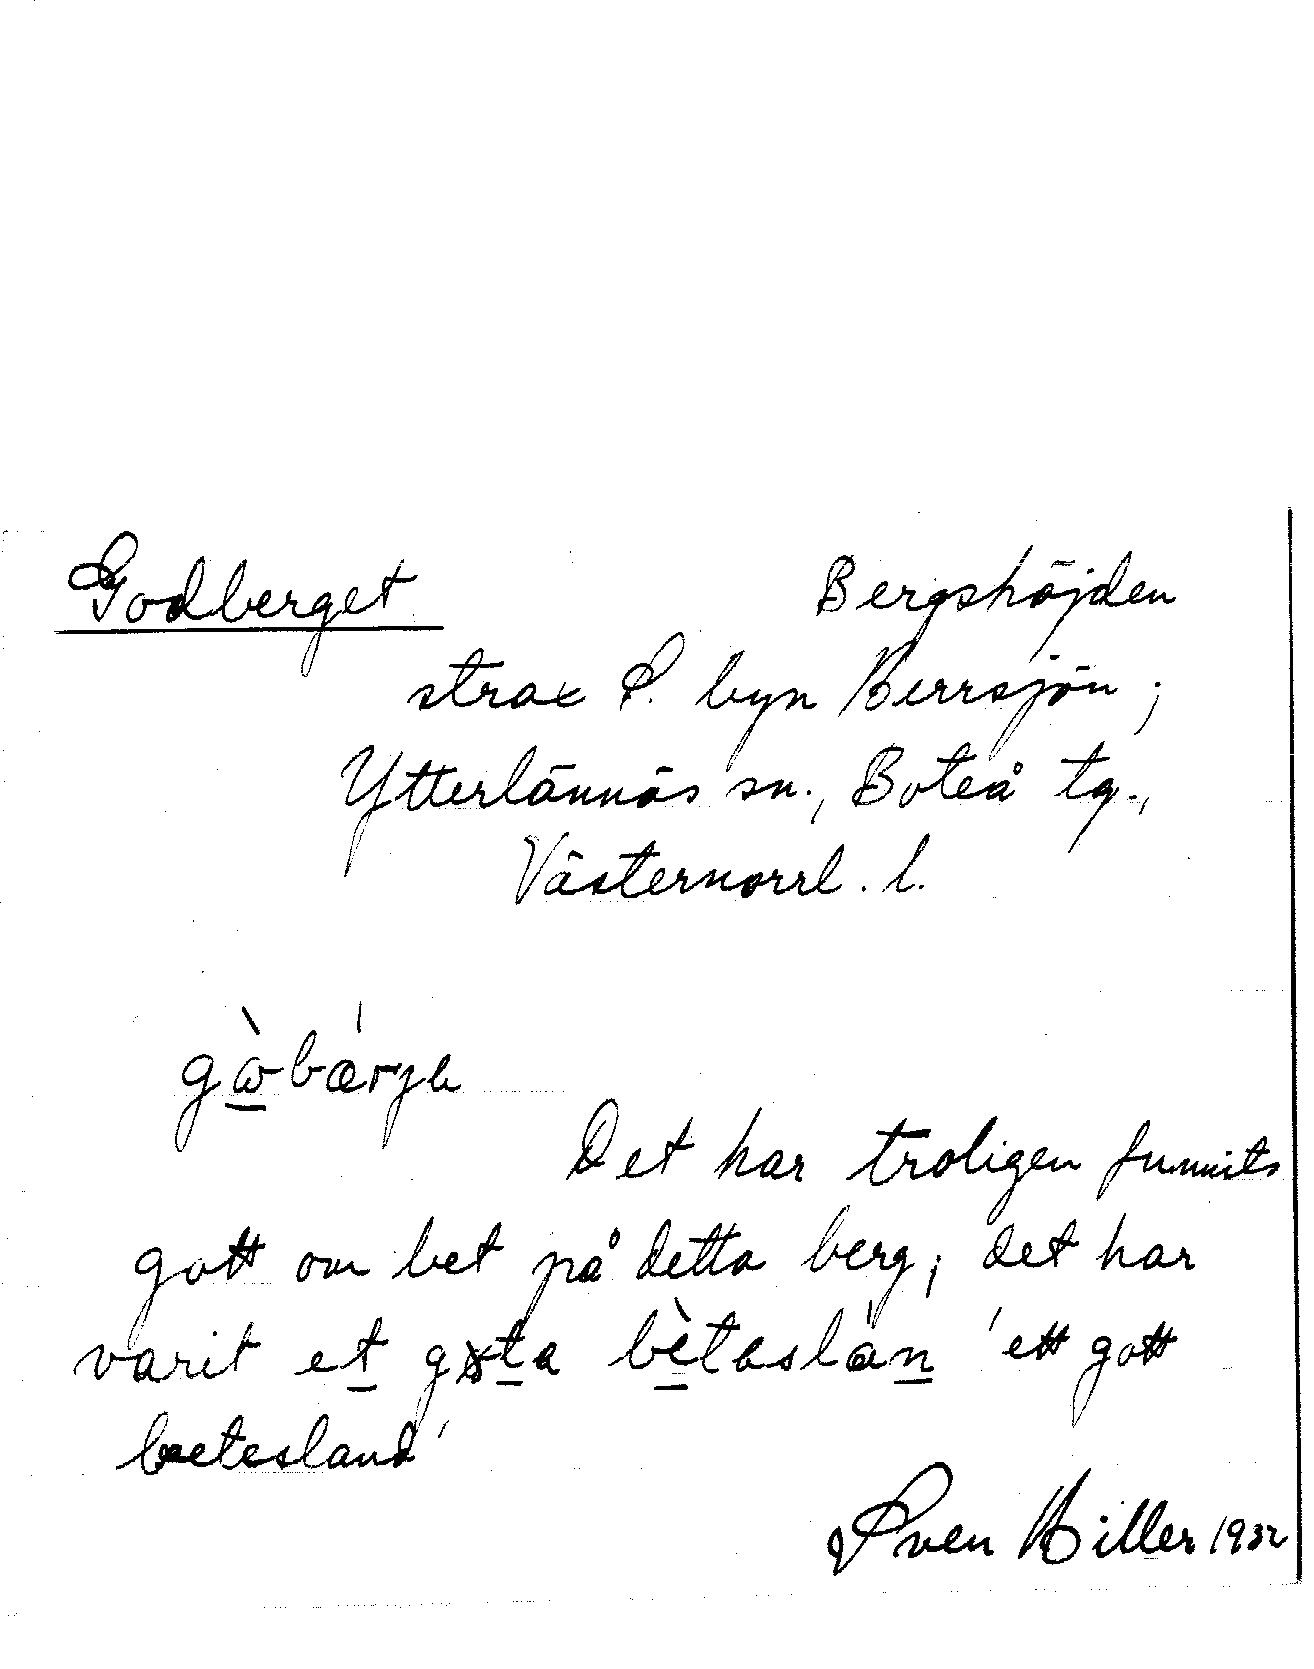 Godberget Bergshöjden
strax S. byn Berrsjön;
Ytterlännäs sn., Boteå tg.,
Västernorrl. l.
gɷ̀bærjɩ
Det har troligen funnits
gott om bet på detta berg; det har
varit et gɷta bètaslàn 'ett gott
betesland'
Sven Hiller 1932